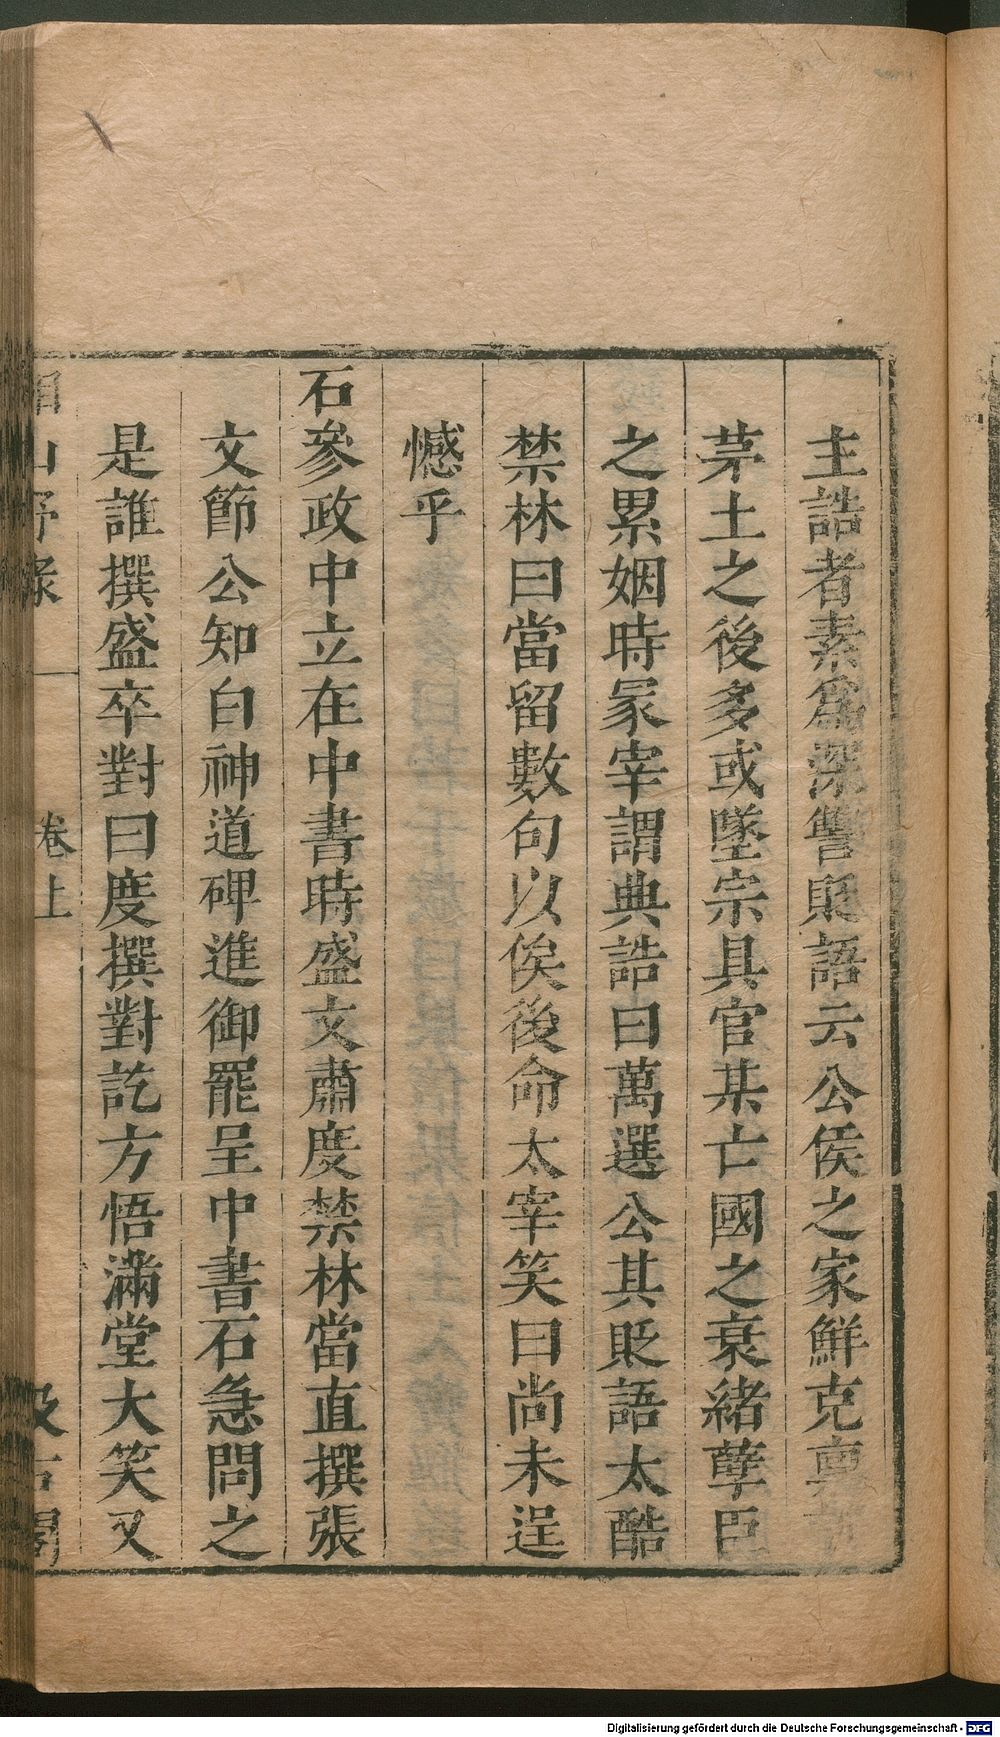 主誥者素爲深讐貶語云公侯之家鮮克
茅土之後多或墜宗具官某亡國之衰緒孽臣
之累姻時冢宰謂典誥曰萬選公其貶語太酷
禁林曰當留數句以俟後命太宰笑曰尚未逞
憾乎
石參政中立在中書時盛文肅度禁林當直撰張
文節公知白神道碑進御罷呈中書石急問之
是誰撰盛卒對曰度撰對訖方悟滿堂大笑又
山野录
卷上
汲古閣
Digitalisierung gefördert durch die Deutsche Forschungsgemeinschaft - DFG